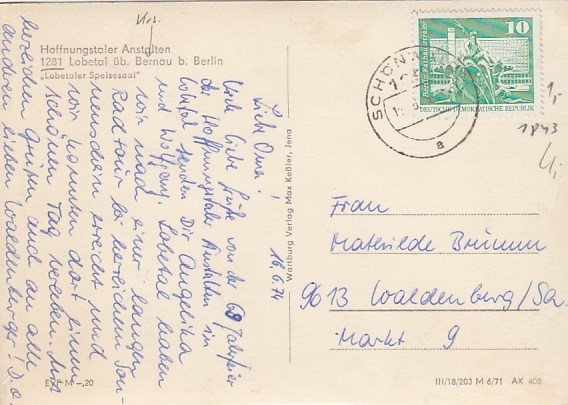 Krs.
Hoffnungstaler Anstalten
1281 Lobetal üb. Bernau b. Berlin
„Lobetaler Speisesaal“
16.6.74
Liebe Oma!
Viele liebe Grüße von der 69. Jahresfeier
der Hoffnungstaler Anstalten in
Lobetal senden Dir Angelika
und Wolfgang. Lobetal haben
wir nach einer langen
Radtour bei herrlichem Son-
nenschein erreicht und
wir konnten dort einen
schönen Tag verleben. Mit
herzlichen Grüßen auch an alle
anderen lieben Waldenburger! D. o.
EVP M –,20
Wartburg Verlag Max Keßler, Jena
SCHÖN
10
Berlin
DEUTSCHE DEMOKRATISCHE REPUBLIK
a
1,-
1843
Frau
Mathilde Brümm
9613 Waldenburg/Sa.
Markt 9
III/18/203 M 6/71 AK 408